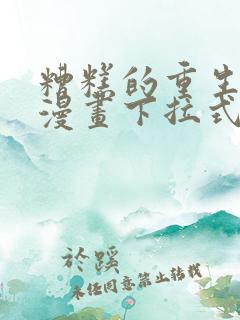 糟糕的重生
漫畫下拉式
於蹊
未经同意禁止转载